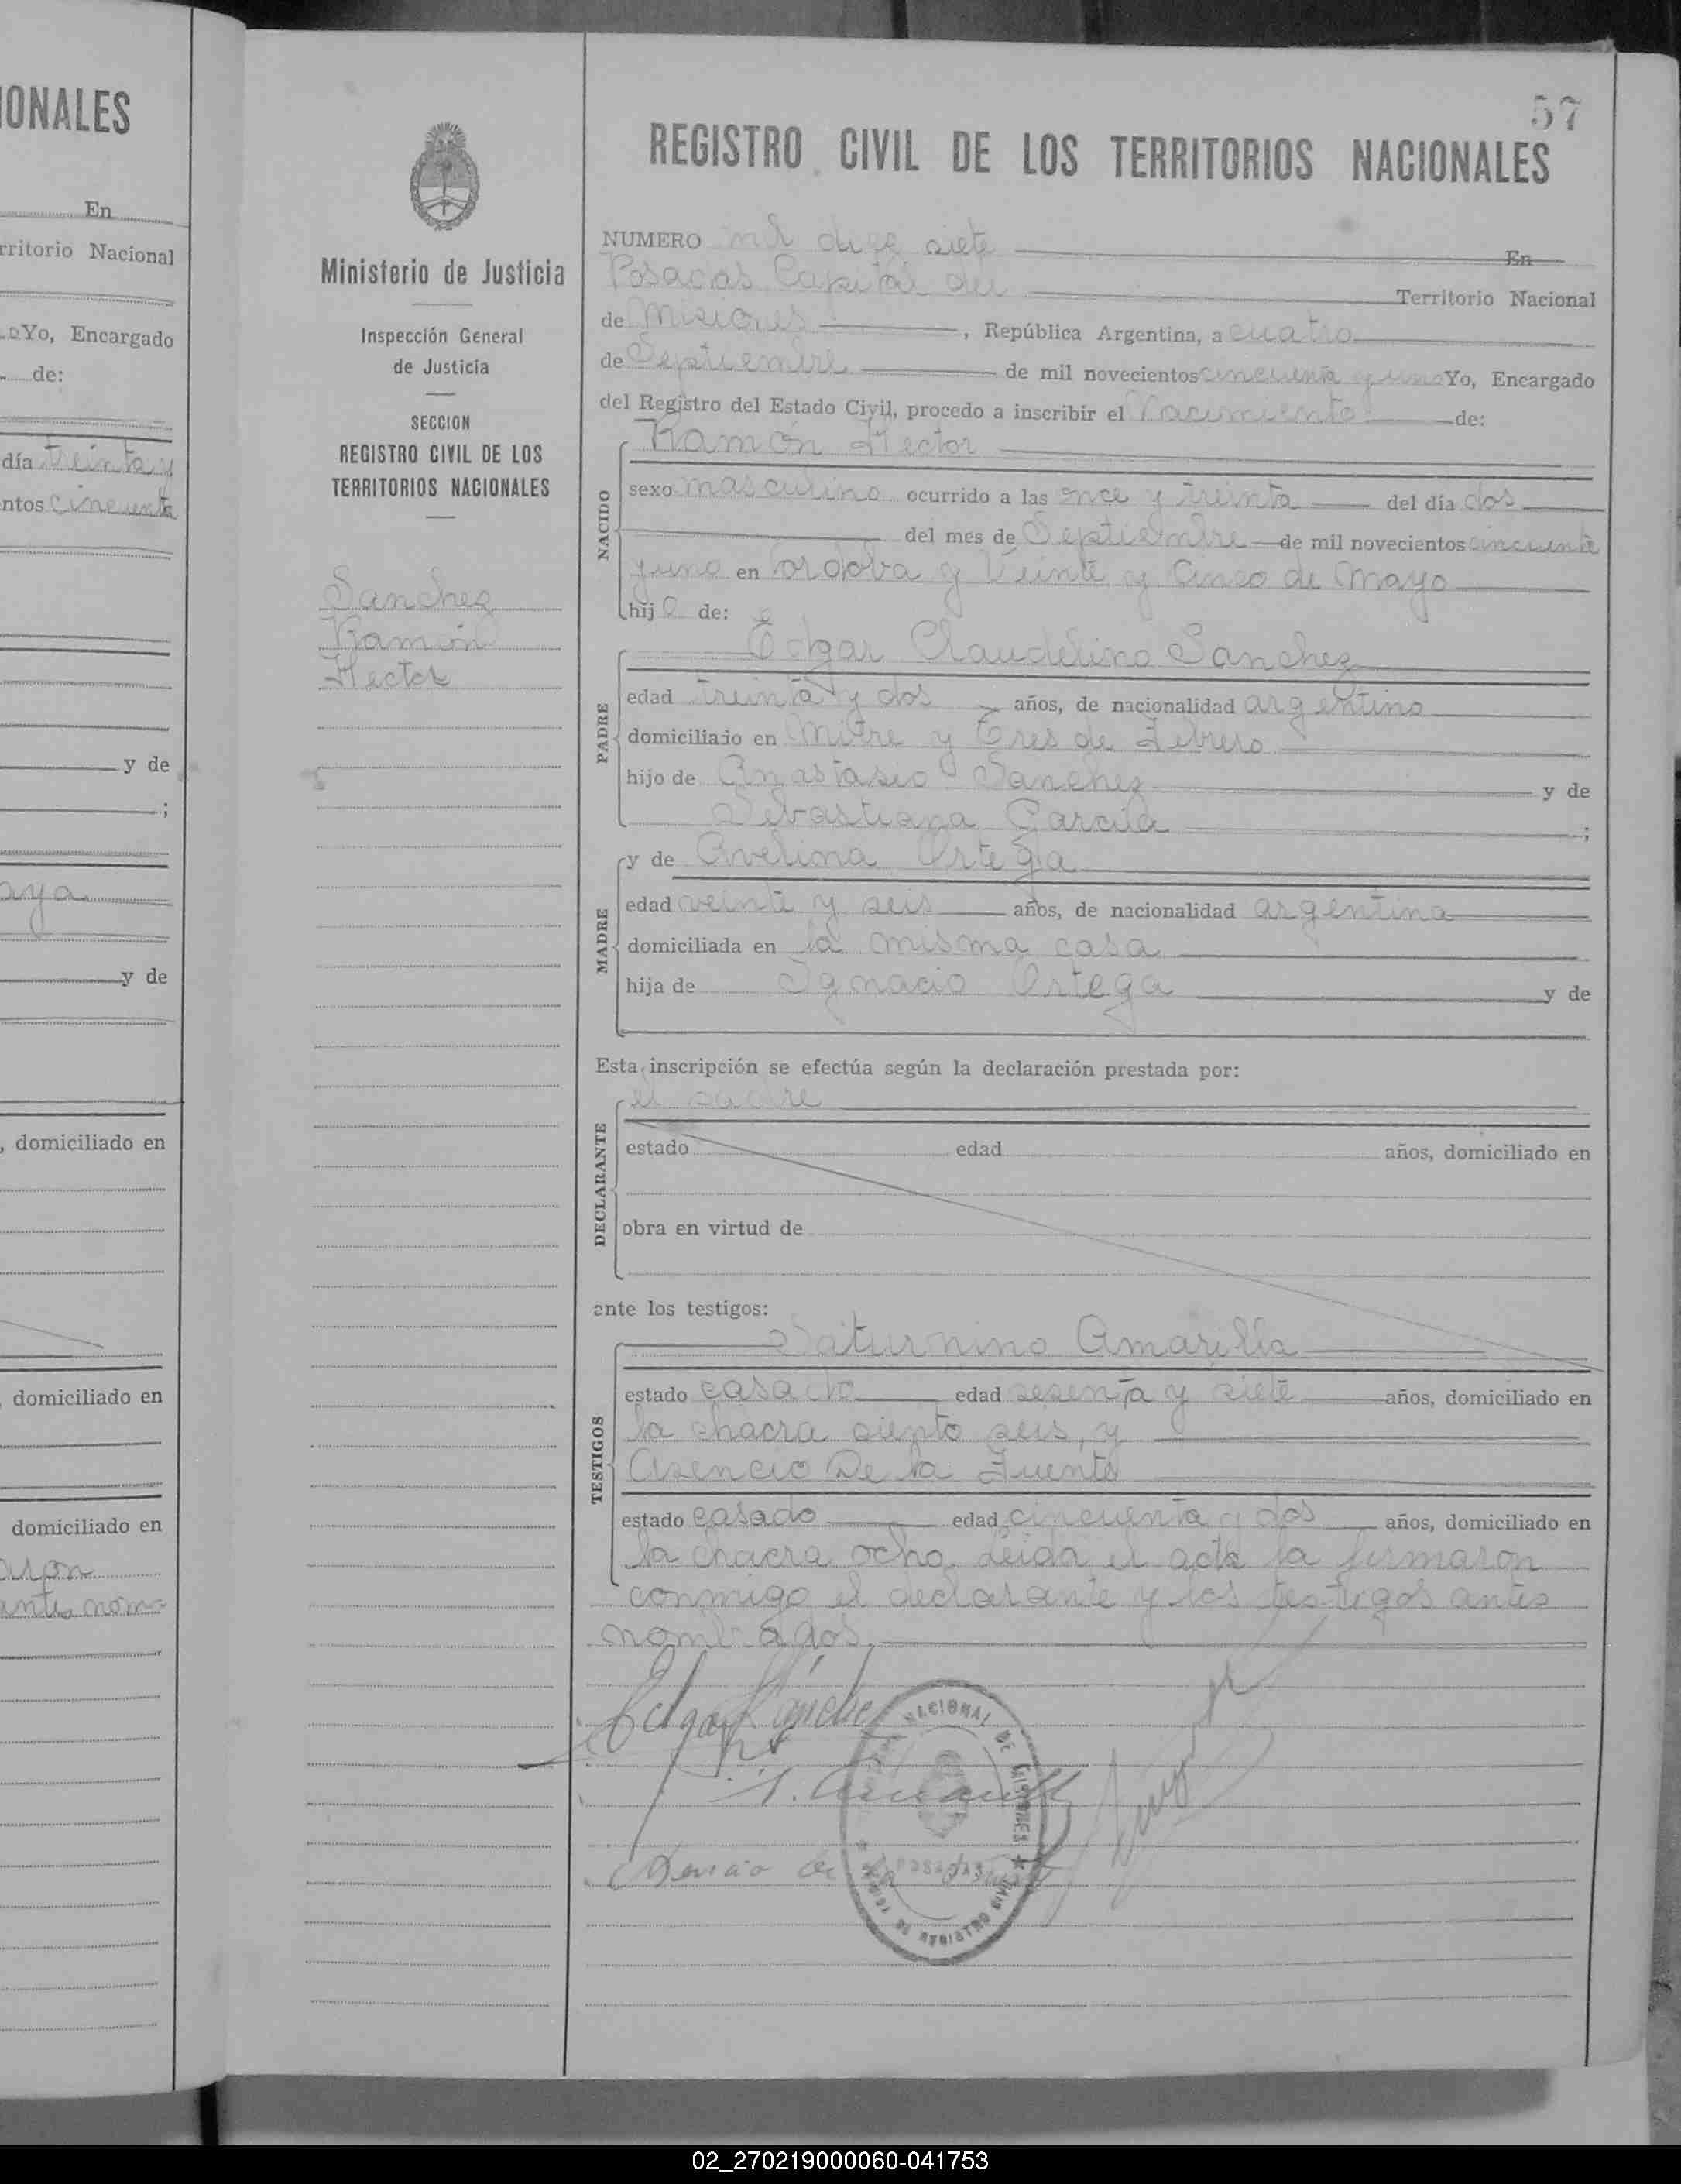 ONALES
En
rritorio Nacional
Yo, Encargado
de:
día treinta y
ntos cincuenta
y de
;
aya
y de
, domiciliado en
domiciliado en
domiciliado en
aron
antes nom-
57
Ministerio de Justicia
Inspección General
de Justicia
SECCION
REGISTRO CIVIL DE LOS
TERRITORIOS NACIONALES
Sanchez
Ramón
Hector
REGISTRO CIVIL DE LOS TERRITORIOS NACIONALES
NUMERO mil diez siete En
Posadas Capital del Territorio Nacional
de Misiones, República Argentina, a cuatro
de Septiembre de mil novecientos cincuenta y uno Yo, Encargado
del Registro del Estado Civil, procedo a inscribir el Nacimiento de:
Ramón Hector
NACIDO
sexo masculino ocurrido a las once y treinta del día dos
del mes de Septiembre de mil novecientos cincuenta
y uno en Cordoba y Veinte y Cinco de Mayo
hijo de:
Edgar Claudelino Sanchez
PADRE
edad treinta y dos años, de nacionalidad argentino
domiciliado en Mitre y Tres de Febrero
hijo de Anastasio Sanchez y de
Sebastiana Garcia ;
y de Avelina Ortega
MADRE
edad veinte y seis años, de nacionalidad argentina
domiciliada en la misma casa
hija de Ignacio Ortega y de
Esta inscripción se efectúa según la declaración prestada por:
el padre
DECLARANTE
estado edad años, domiciliado en
obra en virtud de
ante los testigos:
Saturnino Amarilla
TESTIGOS
estado casado edad sesenta y siete años, domiciliado en
la chacra ciento seis, y
Asencio De la Fuente
estado casado edad cincuenta y dos años, domiciliado en
la chacra ocho. Leida el acta la firmaron
conmigo el declarante y los testigos antes
nombrados.
Edgar Sánchez
S. Amarilla
Asencio de la Fuente
NACIONAL DE MISIONES
POSADAS
02_270219000060-041753